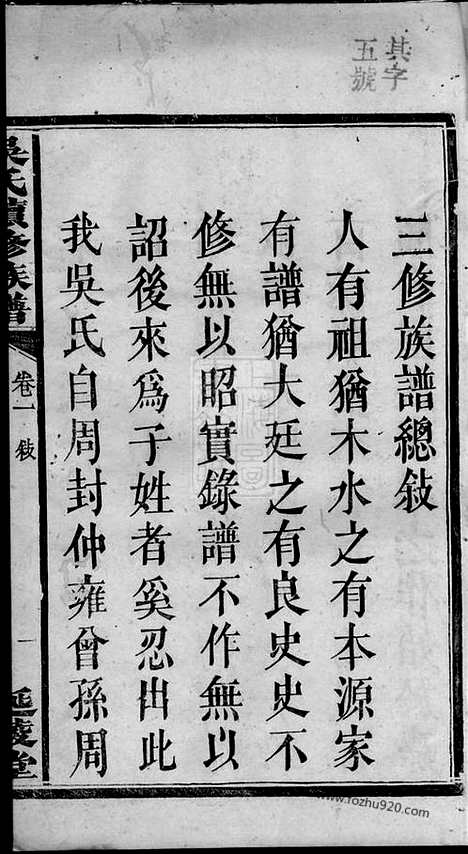 其字
五號
三修族譜總敍
人有祖猶木水之有本源家
有譜猶大廷之有良史史不
修無以昭實錄譜不作無以
詔後來爲子姓者奚忍出此
我吳氏自周封仲雍曾孫周
吳氏續修族譜
卷一
敍
一
延陵堂
www.fozhu920.com